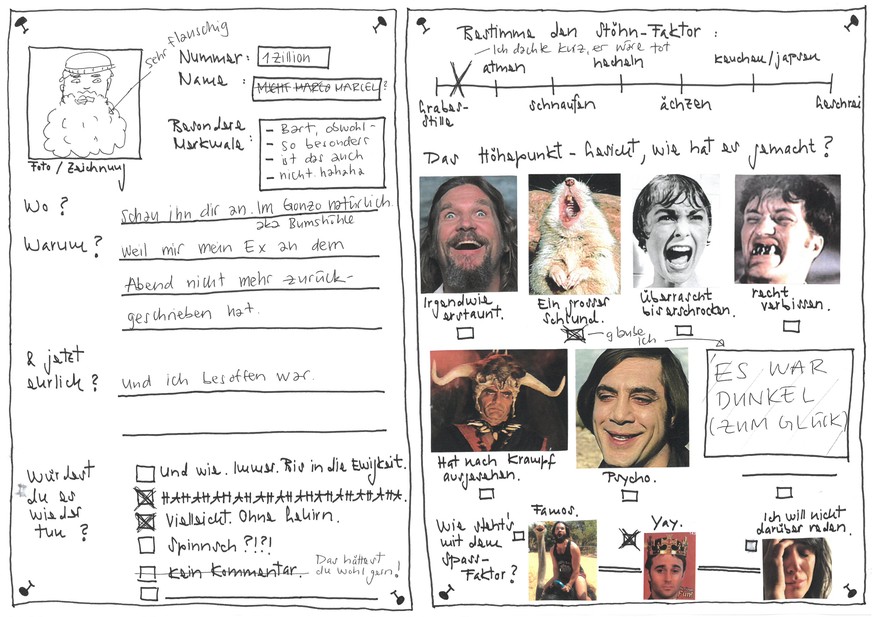 sehr flauschig
Nummer: 1 Zillion
Name: MICHI MARCO MARCEL?
Besondere Merkmale:
- Bart, obwohl -
- so besonders
- ist das auch
- nicht. hahaha
Foto / Zeichnung
Wo?
Schau ihn dir an. Im Gonzo natürlich.
aka Bumshöhle
Warum?
Weil mir mein Ex an dem
Abend nicht mehr zurück-
geschrieben hat.
& jetzt
ehrlich?
Und ich besoffen war.
Würdest
du es
wieder
tun?
Und wie. Immer. Bis in die Ewigkeit.
HAHAHAHAHAHAHAHAHAHAHAHA.
Vielleicht. Ohne Gehirn.
Spinnsch?!?!
Kein Kommentar.
Das hättest
du wohl gern!
Bestimme den Stöhn-Faktor:
Ich dachte kurz, er wäre tot
atmen
hecheln
keuchen/japsen
Grabes-
stille
schnaufen
ächzen
Geschrei
Das Höhepunkt-Gesicht, wie hat er gemacht?
Irgendwie
erstaunt.
Ein grosser
Schlund.
Überrascht
bis erschrocken.
recht
verbissen.
glaube
ich
ES WAR
DUNKEL
(ZUM GLÜCK)
Hat nach Krampf
ausgesehen.
Psycho.
Wie steht's
mit dem
Spass-
Faktor?
Famos.
Yay.
Ich will nicht
darüber reden.